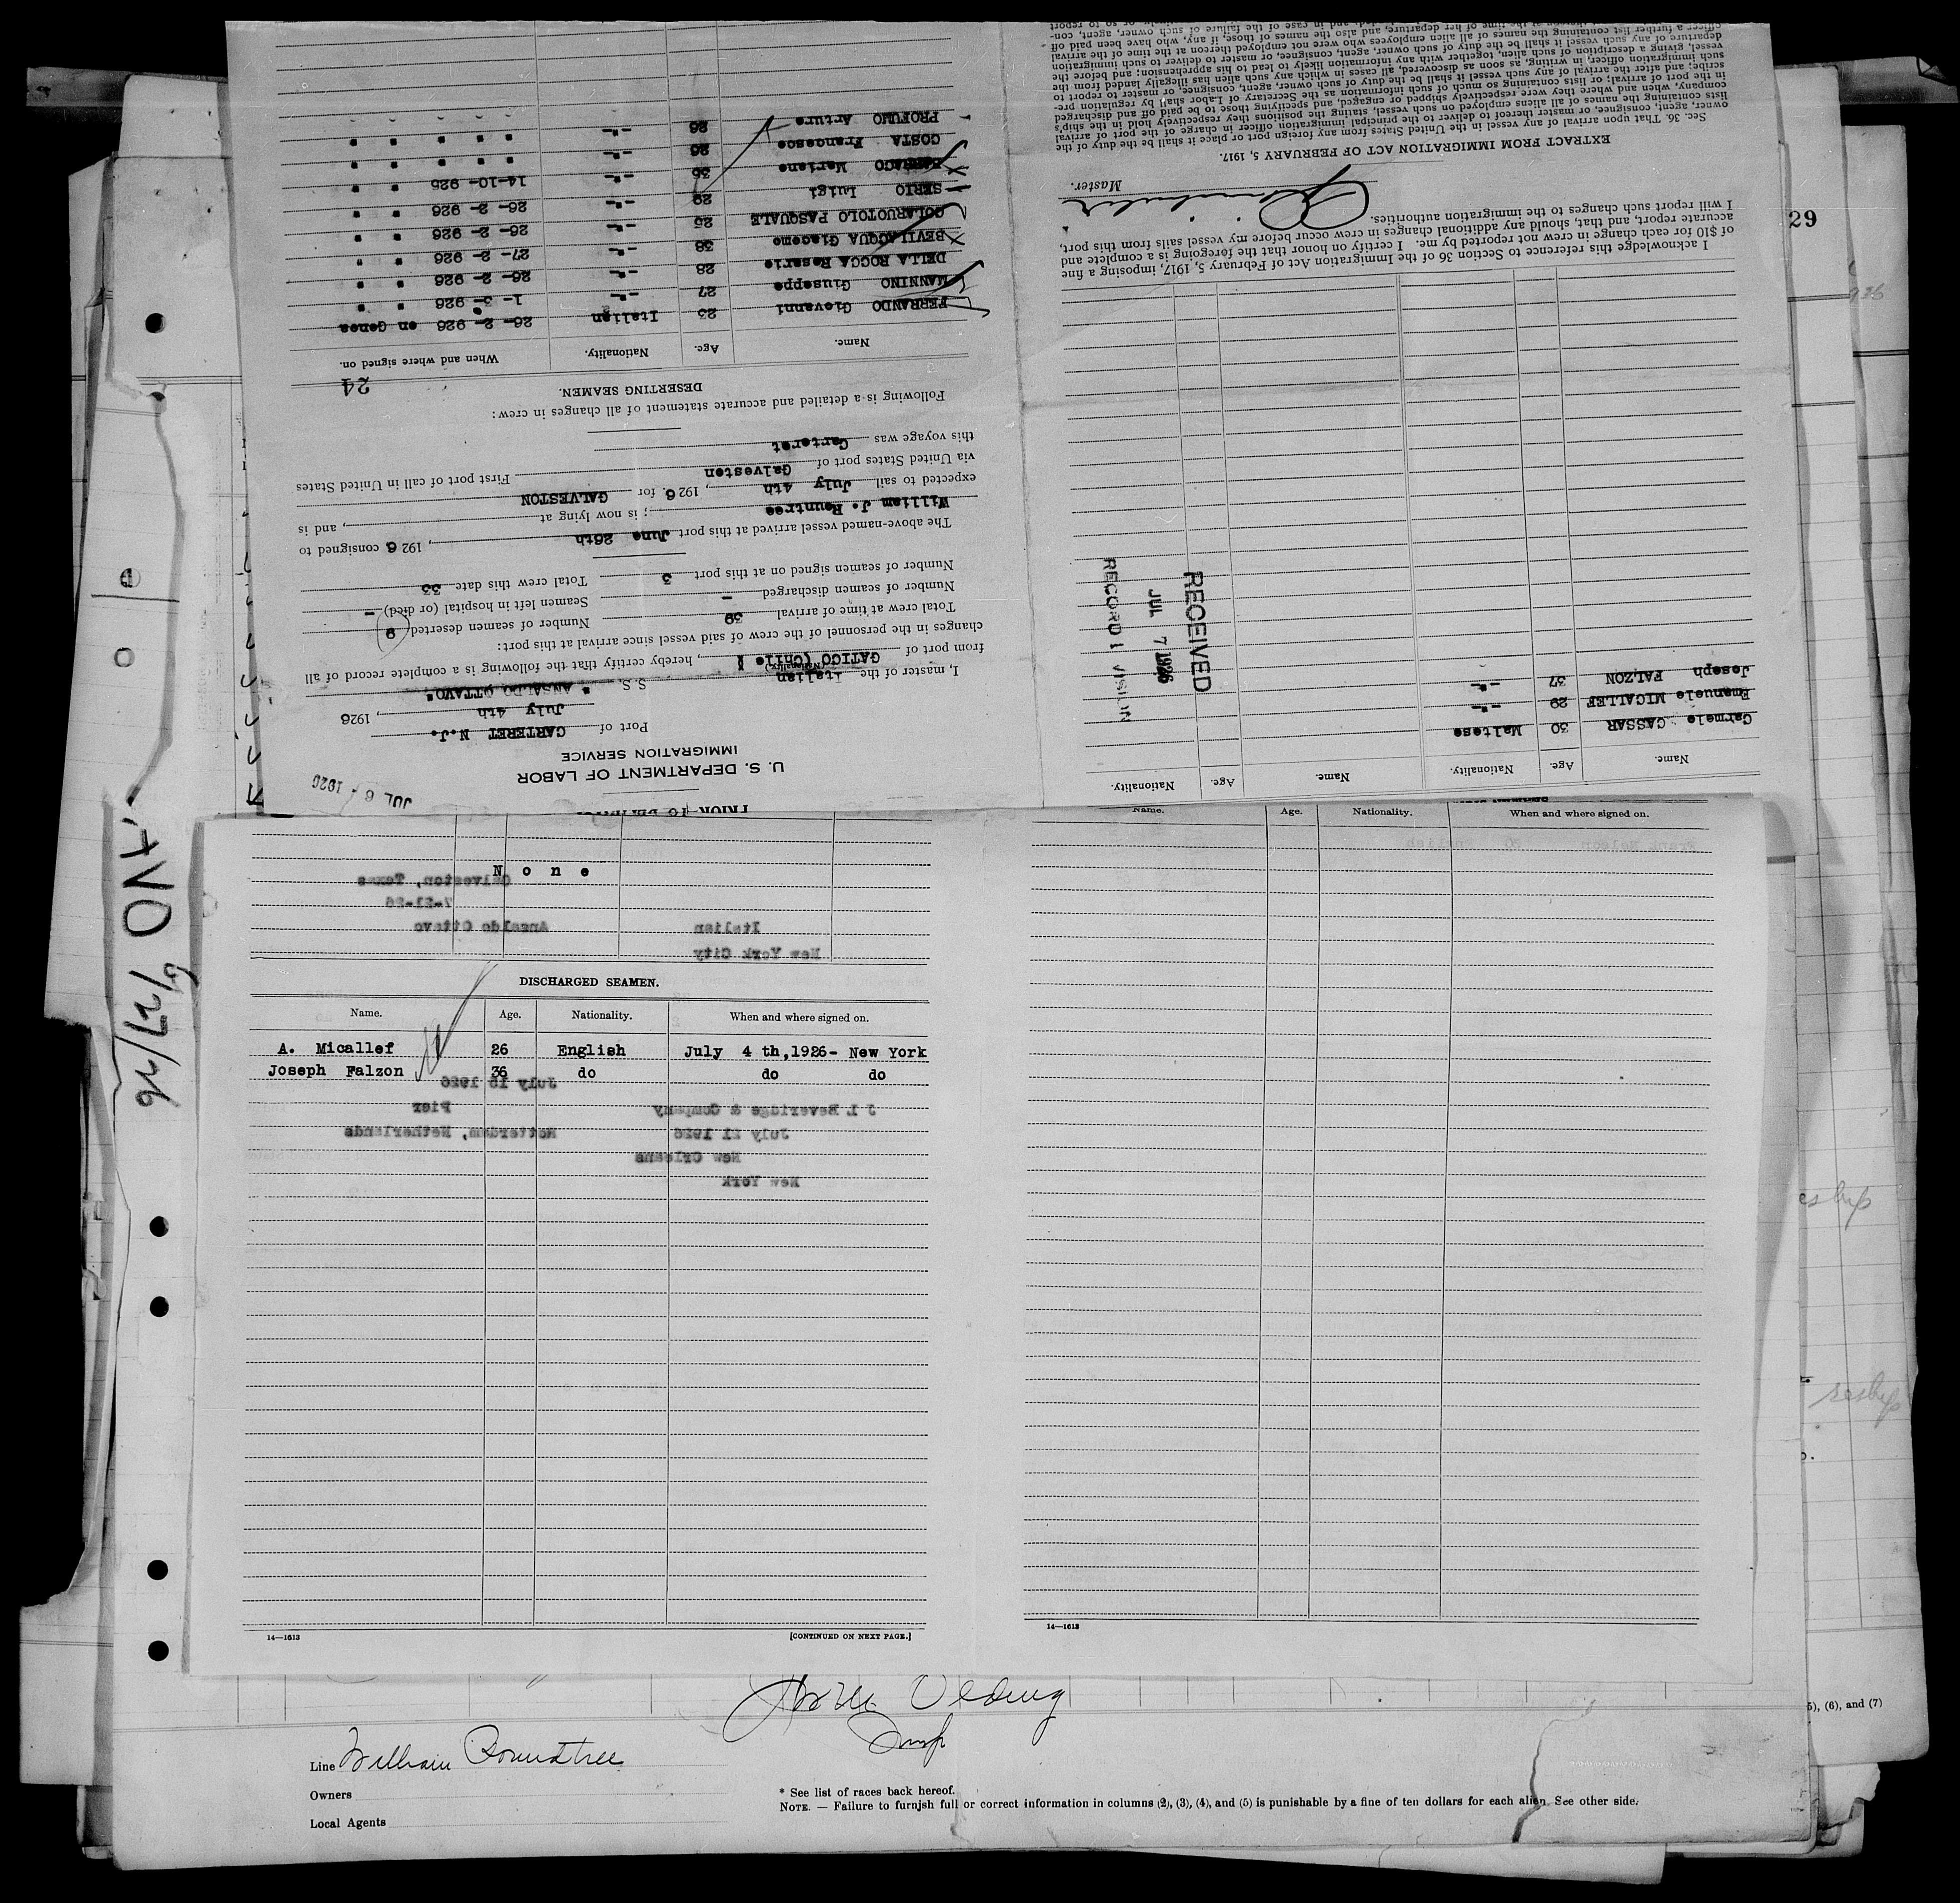 PRIOR TO
JUL 6 - 1926
U. S. DEPARTMENT OF LABOR
IMMIGRATION SERVICE
Port of CARTERET N.J.
July 4th, 1926
I, master of the Italian S. S. " ANSALDO OTTAVO"
(Nationality)
from port of GATICO (Chile), hereby certify that the following is a complete record of all
changes in the personnel of the crew of said vessel since arrival at this port:
Total crew at time of arrival 39 Number of seamen deserted 9
Number of seamen discharged - Seamen left in hospital (or died) -
Number of seamen signed on at this port 3 Total crew this date 33
The above-named vessel arrived at this port June 26th, 1926 consigned to
William J. Rountree; is now lying at , and is
expected to sail July 4th, 1926 for GALVESTON
via United States port of Galveston First port of call in United States
this voyage was Carteret
Following is a detailed and accurate statement of all changes in crew:
DESERTING SEAMEN.
24
Name. Age. Nationality. When and where signed on.
FERRANDO Giovanni 23 Italian 26- 2- 926 en Genoa
MANNINO Giuseppe 27 -"- 1- 3- 926 " "
DELLA ROCCA Rosario 28 -"- 26- 2- 926 " "
BEVILACQUA Giacomo 38 -"- 27- 2- 926 " "
COLARUOTOLO PASQUALE 25 -"- 26- 2- 926 " "
SERIO Luigi 29 -"- 26- 2- 926 " "
Mariano 35 -"- 14-10- 925 " "
COSTA Francesco 26 -"- " " " " "
PROFUMO Arturo 26 -"- " " " " "
Name. Age. Nationality. Name. Age. Nationality.
Carmelo CASSAR 30 Maltese
Emanuele MICALLEF 29 -"-
Joseph FALZON 37 -"-
RECEIVED
JUL 7 1926
RECORD
I acknowledge this reference to Section 36 of the Immigration Act of February 5, 1917, imposing a fine
of $10 for each change in crew not reported by me. I certify on honor that the foregoing is a complete and
accurate report, and that, should any additional changes in crew occur before my vessel sails from this port,
I will report such changes to the immigration authorities.
Master.
EXTRACT FROM IMMIGRATION ACT OF FEBRUARY 5, 1917.
Sec. 36. That upon arrival of any vessel in the United States from any foreign port or place it shall be the duty of the
owner, agent, consignee, or master thereof to deliver to the principal immigration officer in charge of the port of arrival
lists containing the names of all aliens employed on such vessel, stating the positions they respectively hold in the ship's
company, when and where they were respectively shipped or engaged, and specifying those to be paid off and discharged
in the port of arrival; or lists containing so much of such information as the Secretary of Labor shall by regulation pre-
scribe; and after the arrival of any such vessel it shall be the duty of such owner, agent, consignee, or master to report to
such immigration officer, in writing, as soon as discovered, all cases in which any such alien has illegally landed from the
vessel, giving a description of such alien, together with any information likely to lead to his apprehension; and before the
departure of any such vessel it shall be the duty of such owner, agent, consignee, or master to deliver to such immigration
officer a further list containing the names of all alien employees who were not employed thereon at the time of the arrival
29
N o n e
Galveston, Texas
7-21-26
Ansaldo Ottavo Italian
New York City
DISCHARGED SEAMEN.
Name. Age. Nationality. When and where signed on.
A. Micallef 26 English July 4 th,1926- New York
Joseph Falzon 36 do do do
July 15 1926
Pier J L Beveridge & Company
Rotterdam, Netherlands July 21 1926
New Orleans
New York
14—1613 [CONTINUED ON NEXT PAGE.]
Name. Age. Nationality. When and where signed on.
14—1613
Insp
Line William Roundtree
Owners
Local Agents
* See list of races back hereof.
NOTE. — Failure to furnish full or correct information in columns (2), (3), (4), and (5) is punishable by a fine of ten dollars for each alien See other side.
5), (6), and (7)